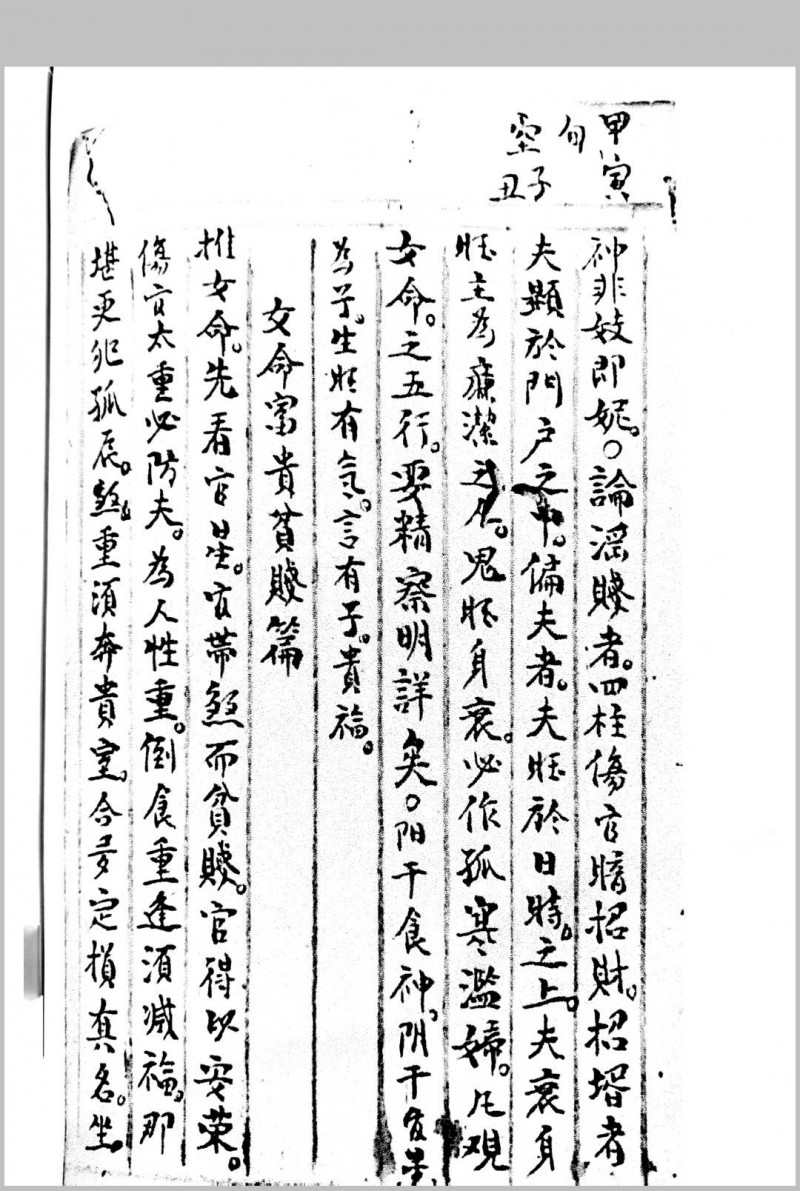 甲寅
旬
空子
丑
神非妓即妮。○論淫賤者。四柱傷官暗招財。招壻者
夫顯於門户之中。偏夫者。夫旺於日時。之上。夫衰身
旺主為廉潔之人。鬼旺身衰。必作孤寒濫婦。凡观
女命。之五行。要精察明詳矣。○阳干食神。阴干
為子。生旺有氣。言有子。貴福。
女命富貴貧賤篇
推女命。先看官星。官帶煞而貧賤。官得以安荣。
傷官太重必防夫。為人性重。倒食重逢須减福。那
堪更犯孤辰。煞重須奔貴室。合多定損真名。坐